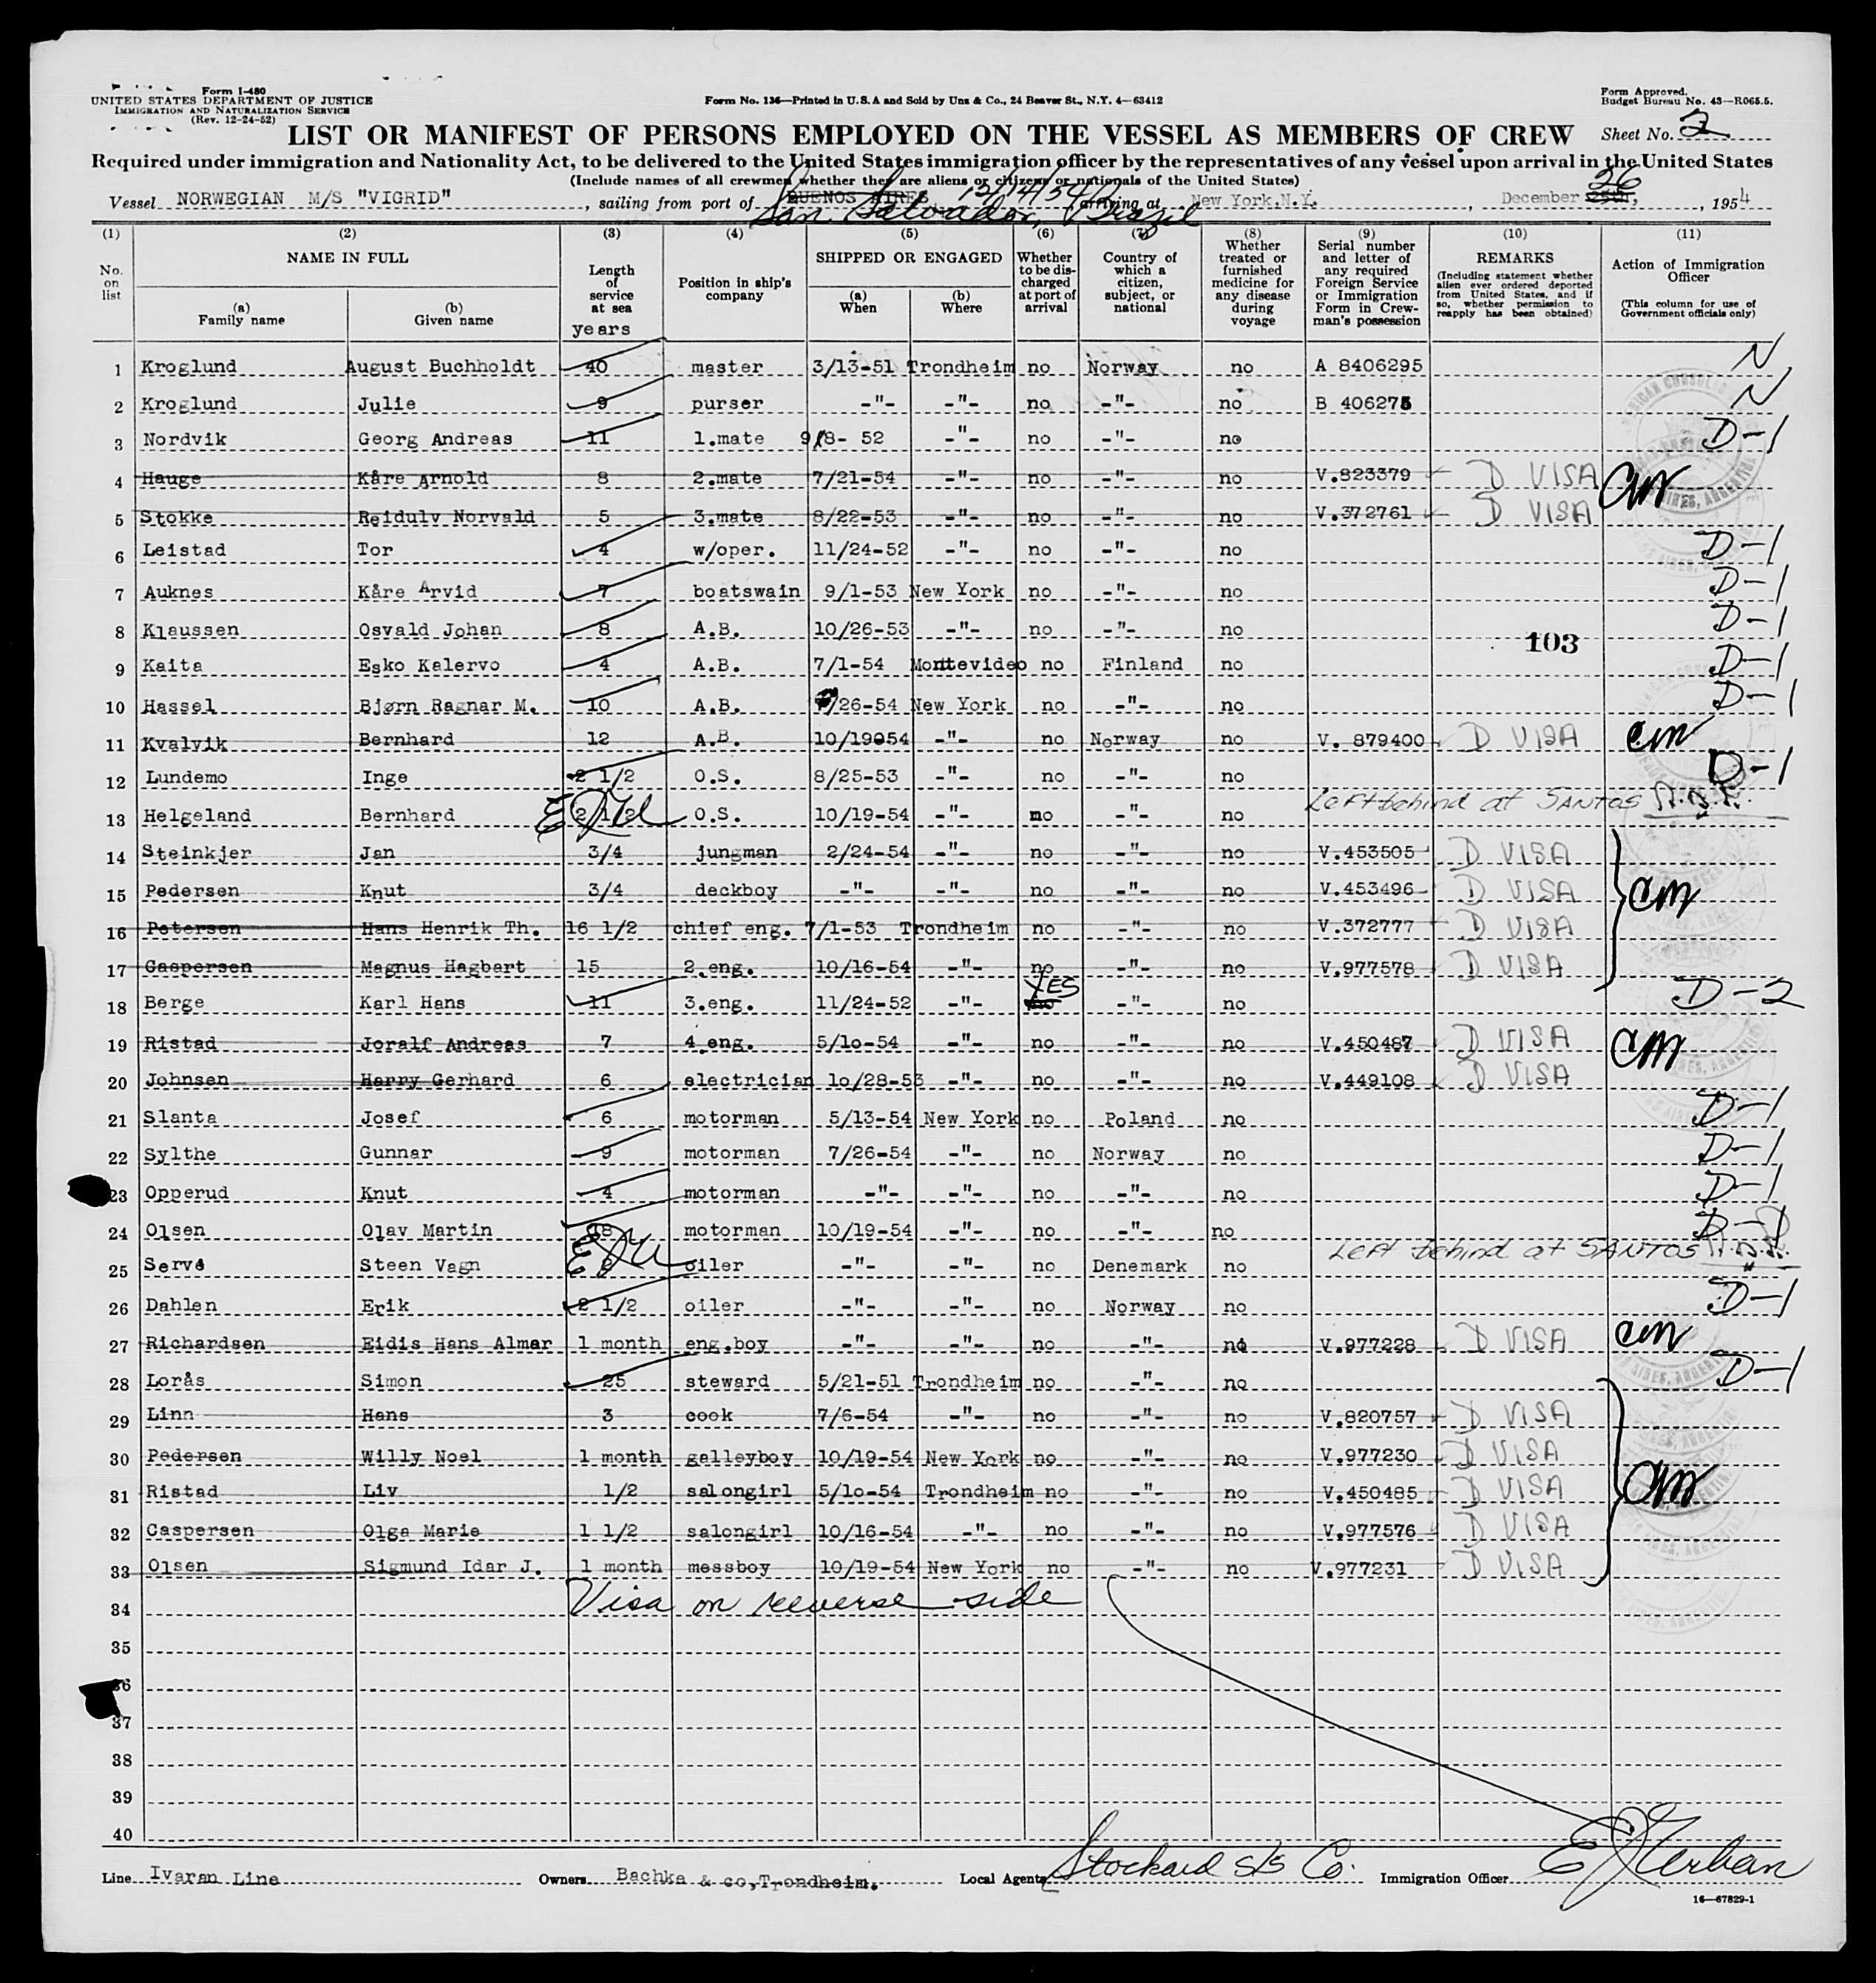 Form I-480
UNITED STATES DEPARTMENT OF JUSTICE
IMMIGRATION AND NATURALIZATION SERVICE
(Rev. 12-24-52)
Form No. 136—Printed in U.S.A and Sold by Unz & Co., 24 Beaver St., N.Y. 4—63412
Form Approved.
Budget Bureau No. 43—R065.5.
LIST OR MANIFEST OF PERSONS EMPLOYED ON THE VESSEL AS MEMBERS OF CREW
Sheet No. 2
Required under immigration and Nationality Act, to be delivered to the United States immigration officer by the representatives of any vessel upon arrival in the United States
(Include names of all crewmen whether they are aliens or citizens or nationals of the United States)
Vessel NORWEGIAN M/S "VIGRID", sailing from port of BUENOS AIRES 12/14/54 San Salvador, Brazil, arriving at New York, N.Y., December 25th, 26, 1954
(1) No. on list
(2) NAME IN FULL (a) Family name (b) Given name
(3) Length of service at sea years
(4) Position in ship's company
(5) SHIPPED OR ENGAGED (a) When (b) Where
(6) Whether to be discharged at port of arrival
(7) Country of which a citizen, subject, or national
(8) Whether treated or furnished medicine for any disease during voyage
(9) Serial number and letter of any required Foreign Service or Immigration Form in Crewman's possession
(10) REMARKS (Including statement whether alien ever ordered deported from United States, and if so, whether permission to reapply has been obtained)
(11) Action of Immigration Officer (This column for use of Government officials only)
1 Kroglund August Buchholdt 40 master 3/13-51 Trondheim no Norway no A 8406295 N
2 Kroglund Julie 9 purser -"- -"- no -"- no B 406275 N
3 Nordvik Georg Andreas 11 1.mate 9/8- 52 -"- no -"- no D-1
4 Hauge Kåre Arnold 8 2.mate 7/21-54 -"- no -"- no V.823379 D VISA CM
5 Stokke Reidulv Norvald 5 3.mate 8/22-53 -"- no -"- no V.372761 D VISA
6 Leistad Tor 4 w/oper. 11/24-52 -"- no -"- no D-1
7 Auknes Kåre Arvid 7 boatswain 9/1-53 New York no -"- no D-1
8 Klaussen Osvald Johan 8 A.B. 10/26-53 -"- no -"- no D-1
103
9 Kaita Esko Kalervo 4 A.B. 7/1-54 Montevideo no Finland no D-1
10 Hassel Bjørn Ragnar M. 10 A.B. 7/26-54 New York no -"- no D-1
11 Kvalvik Bernhard 12 A.B. 10/19054 -"- no Norway no V. 879400 D VISA CM
12 Lundemo Inge 2 1/2 O.S. 8/25-53 -"- no -"- no D-1
13 Helgeland Bernhard 2 1/2 O.S. 10/19-54 -"- no -"- no Left behind at SANTOS
14 Steinkjer Jan 3/4 jungman 2/24-54 -"- no -"- no V.453505 D VISA
15 Pedersen Knut 3/4 deckboy -"- -"- no -"- no V.453496 D VISA CM
16 Petersen Hans Henrik Th. 16 1/2 chief eng. 7/1-53 Trondheim no -"- no V.372777 D VISA
17 Caspersen Magnus Hagbart 15 2.eng. 10/16-54 -"- no -"- no V.977578 D VISA
18 Berge Karl Hans 11 3.eng. 11/24-52 -"- no YES -"- no D-2
19 Ristad Joralf Andreas 7 4.eng. 5/10-54 -"- no -"- no V.450487 D VISA CM
20 Johnsen Harry Gerhard 6 electrician 10/28-53 -"- no -"- no V.449108 D VISA
21 Slanta Josef 6 motorman 5/13-54 New York no Poland no D-1
22 Sylthe Gunnar 9 motorman 7/26-54 -"- no Norway no D-1
23 Opperud Knut 4 motorman -"- -"- no -"- no D-1
24 Olsen Olav Martin 18 motorman 10/19-54 -"- no -"- no D-1
25 Servé Steen Vagn oiler -"- -"- no Denemark no Left behind at SANTOS
26 Dahlen Erik 2 1/2 oiler -"- -"- no Norway no D-1
27 Richardsen Eidis Hans Almar 1 month eng.boy -"- -"- no -"- no V.977228 D VISA CM
28 Lorås Simon 25 steward 5/21-51 Trondheim no -"- no D-1
29 Linn Hans 3 cook 7/6-54 -"- no -"- no V.820757 D VISA
30 Pedersen Willy Noel 1 month galleyboy 10/19-54 New York no -"- no V.977230 D VISA
31 Ristad Liv 1/2 salongirl 5/10-54 Trondheim no -"- no V.450485 D VISA CM
32 Caspersen Olga Marie 1 1/2 salongirl 10/16-54 -"- no -"- no V.977576 D VISA
33 Olsen Sigmund Idar J. 1 month messboy 10/19-54 New York no -"- no V.977231 D VISA
34 Visa on reverse side
35
36
37
38
39
40
Line Ivaran Line Owners Bachka & co,Trondheim. Local Agents Stockard S/S Co. Immigration Officer
16—67829-1